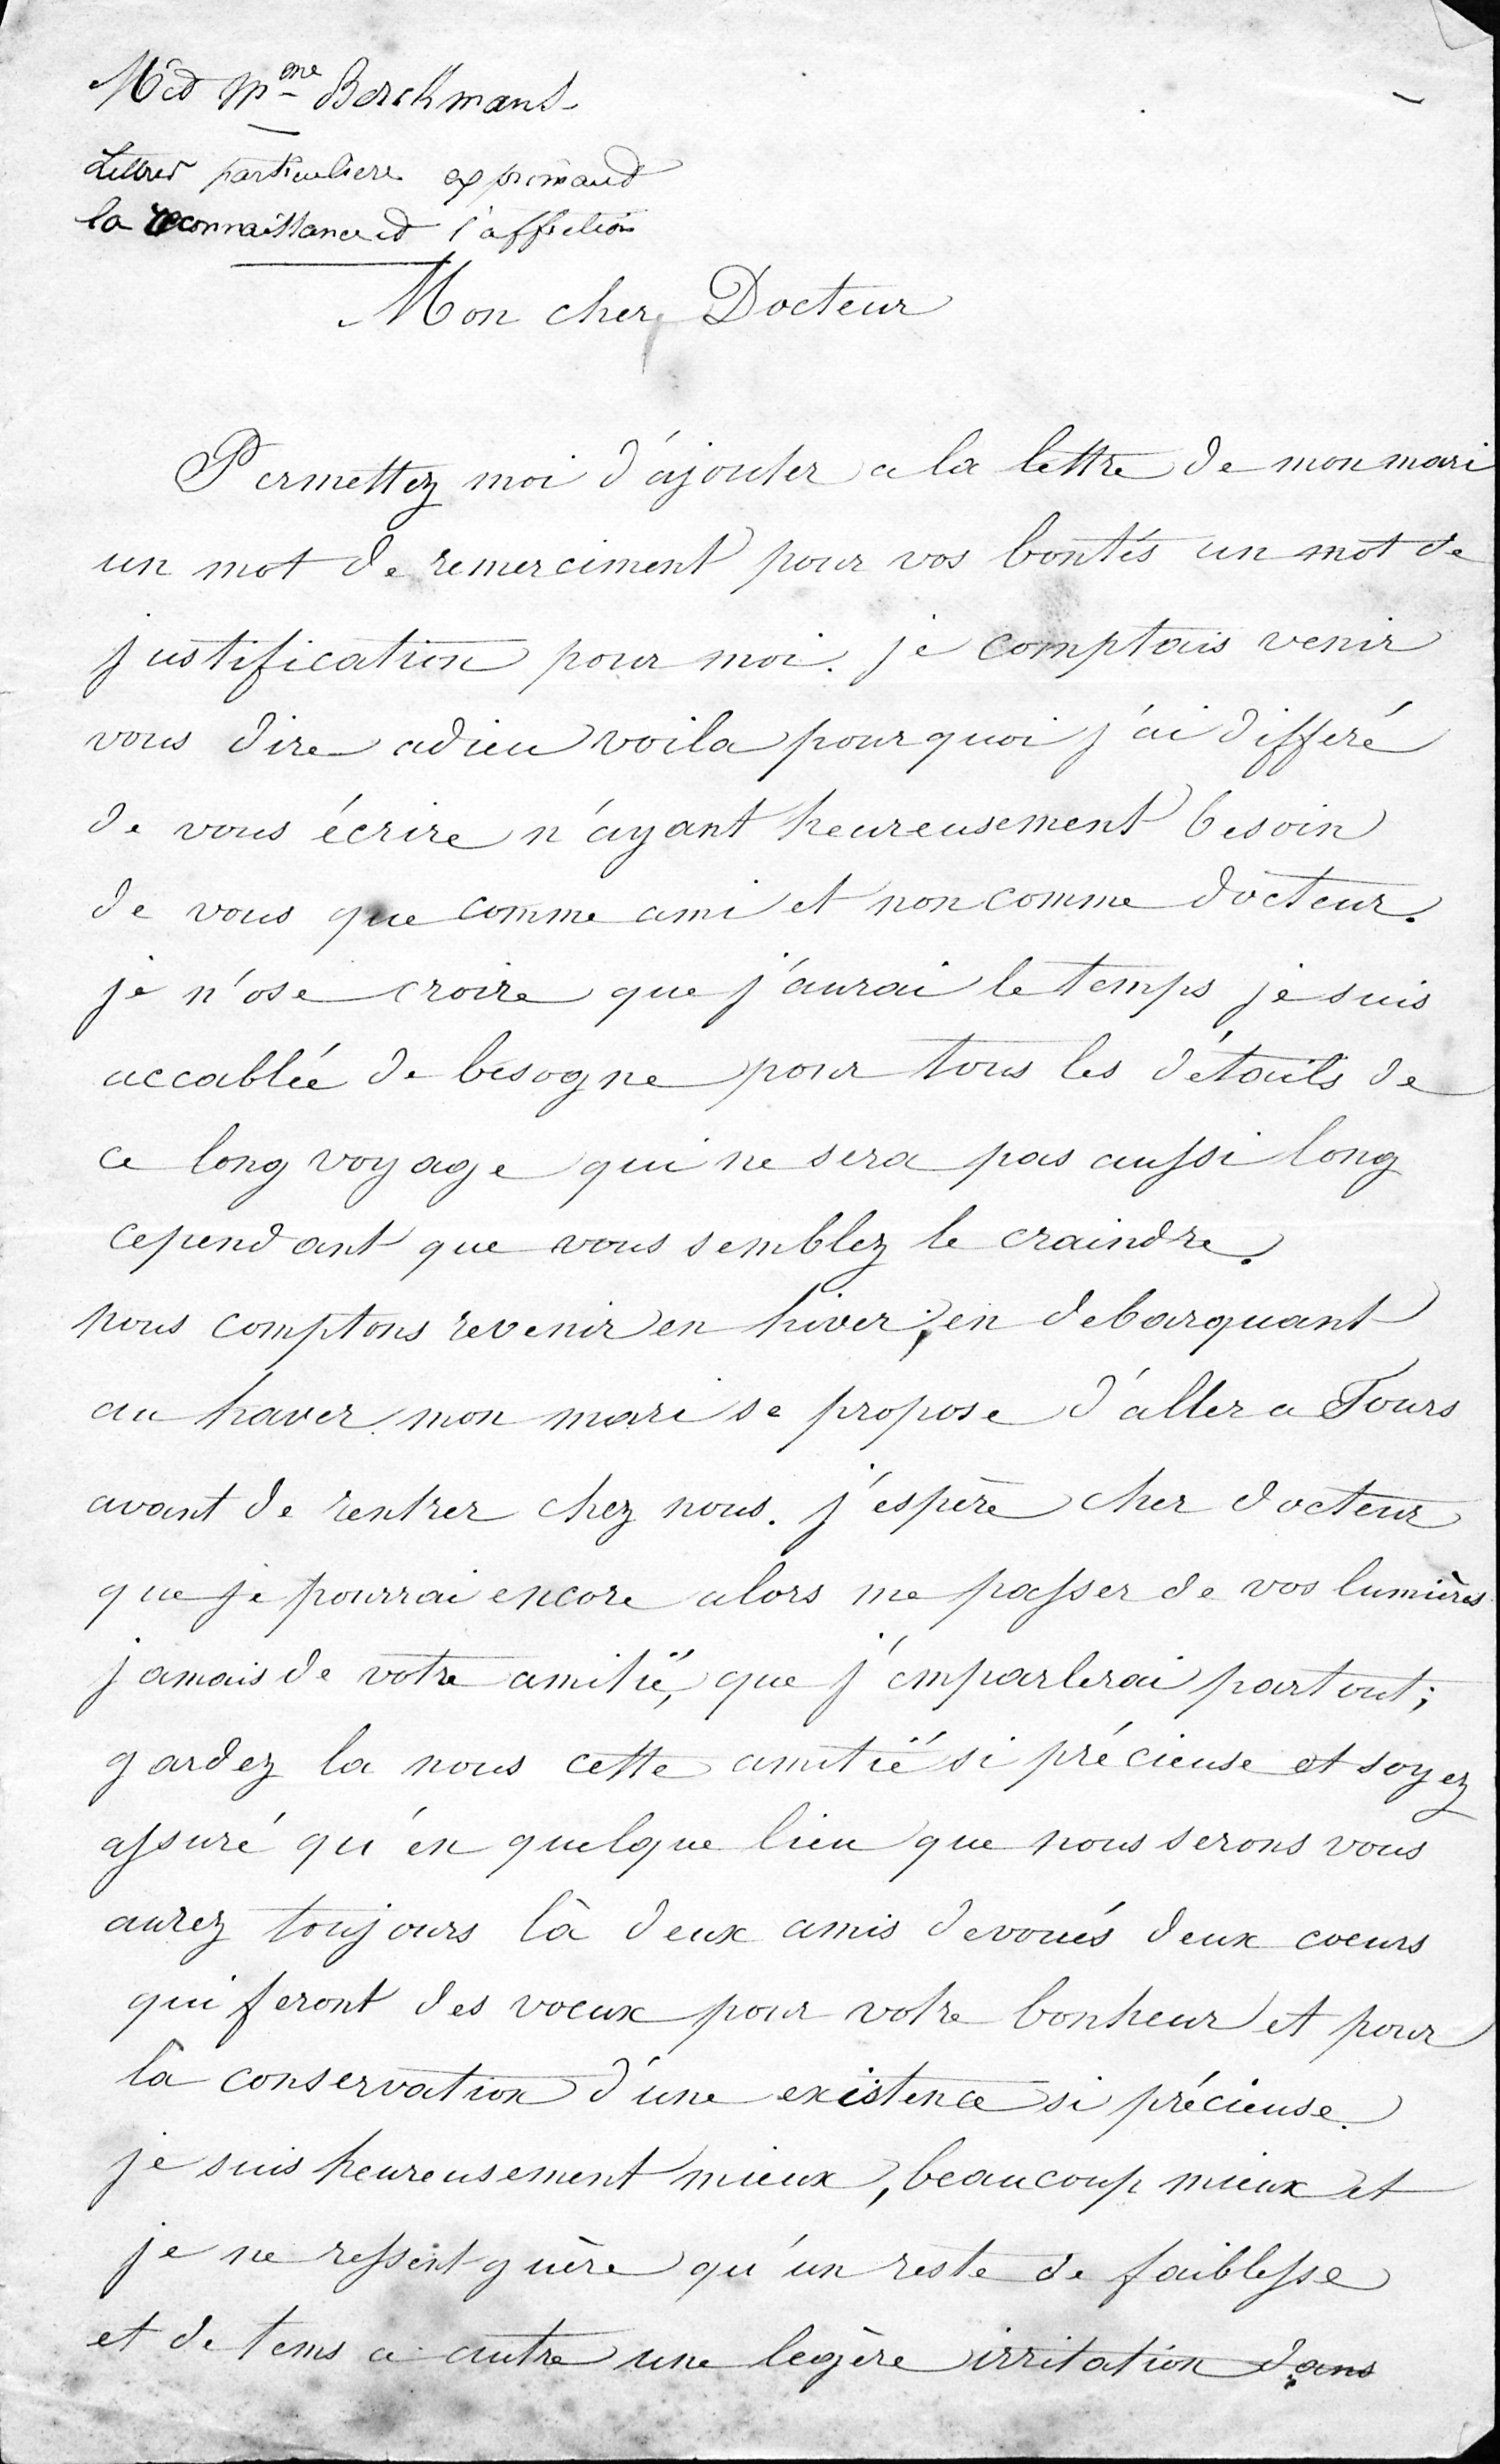 Mr et Mme Berckmans
Lettres particulieres exprimant
la reconnaissance et l'affection
Mon cher Docteur
Permettez moi d'ajouter a la lettre de mon mari
un mot de remerciment pour vos bontés un mot de
justification pour moi. je comptais venir
vous dire adieu voila pourquoi j'ai differé
de vous écrire n'ayant heureusement besoin
de vous que comme ami et non comme docteur.
je n'ose croire que j'aurai le temps je suis
accablée de besogne pour tous les détails de
ce long voyage qui ne sera pas aussi long
cependant que vous semblez le craindre.
nous comptons revenir en hiver; en debarquant
au haver mon mari se propose d'aller a Tours
avant de rentrer chez nous. j'espère cher docteur
que je pourrai encore alors me passer de vos lumières
jamais de votre amitié, que j'emparlerai partout;
gardez la nous cette amitié si précieuse et soyez
assuré qu'en quelque lieu que nous serons vous
aurez toujours là deux amis devoués deux coeurs
qui feront des voeux pour votre bonheur et pour
la conservation d'une existence si précieuse.
je suis heureusement mieux, beaucoup mieux et
je ne ressent guère qu'un reste de faiblesse
et de tems a autre une legère irritation dans